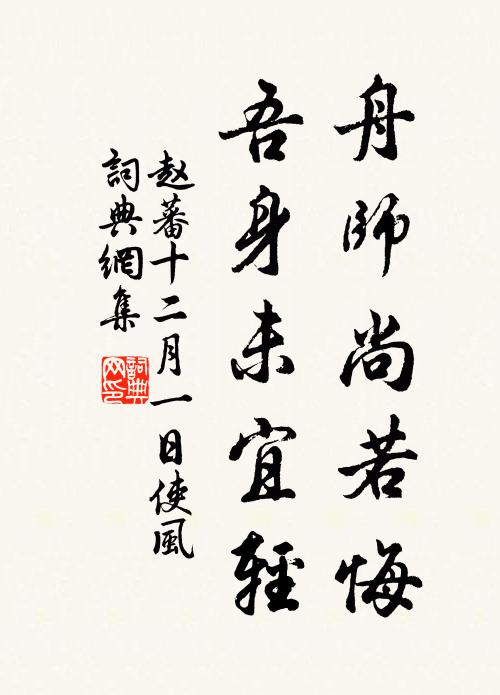 舟師尚若悔
吾身未宜輕
赵蕃十二月一日使風
詞典網集
詞典
网印